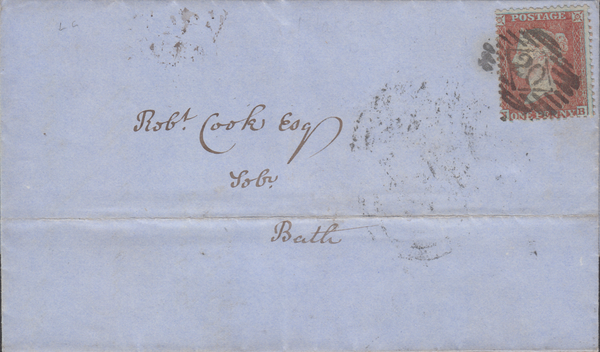 LL
POSTAGE
20
ONE PENNY B
Robt. Cook Esq
Sobr.
Bath